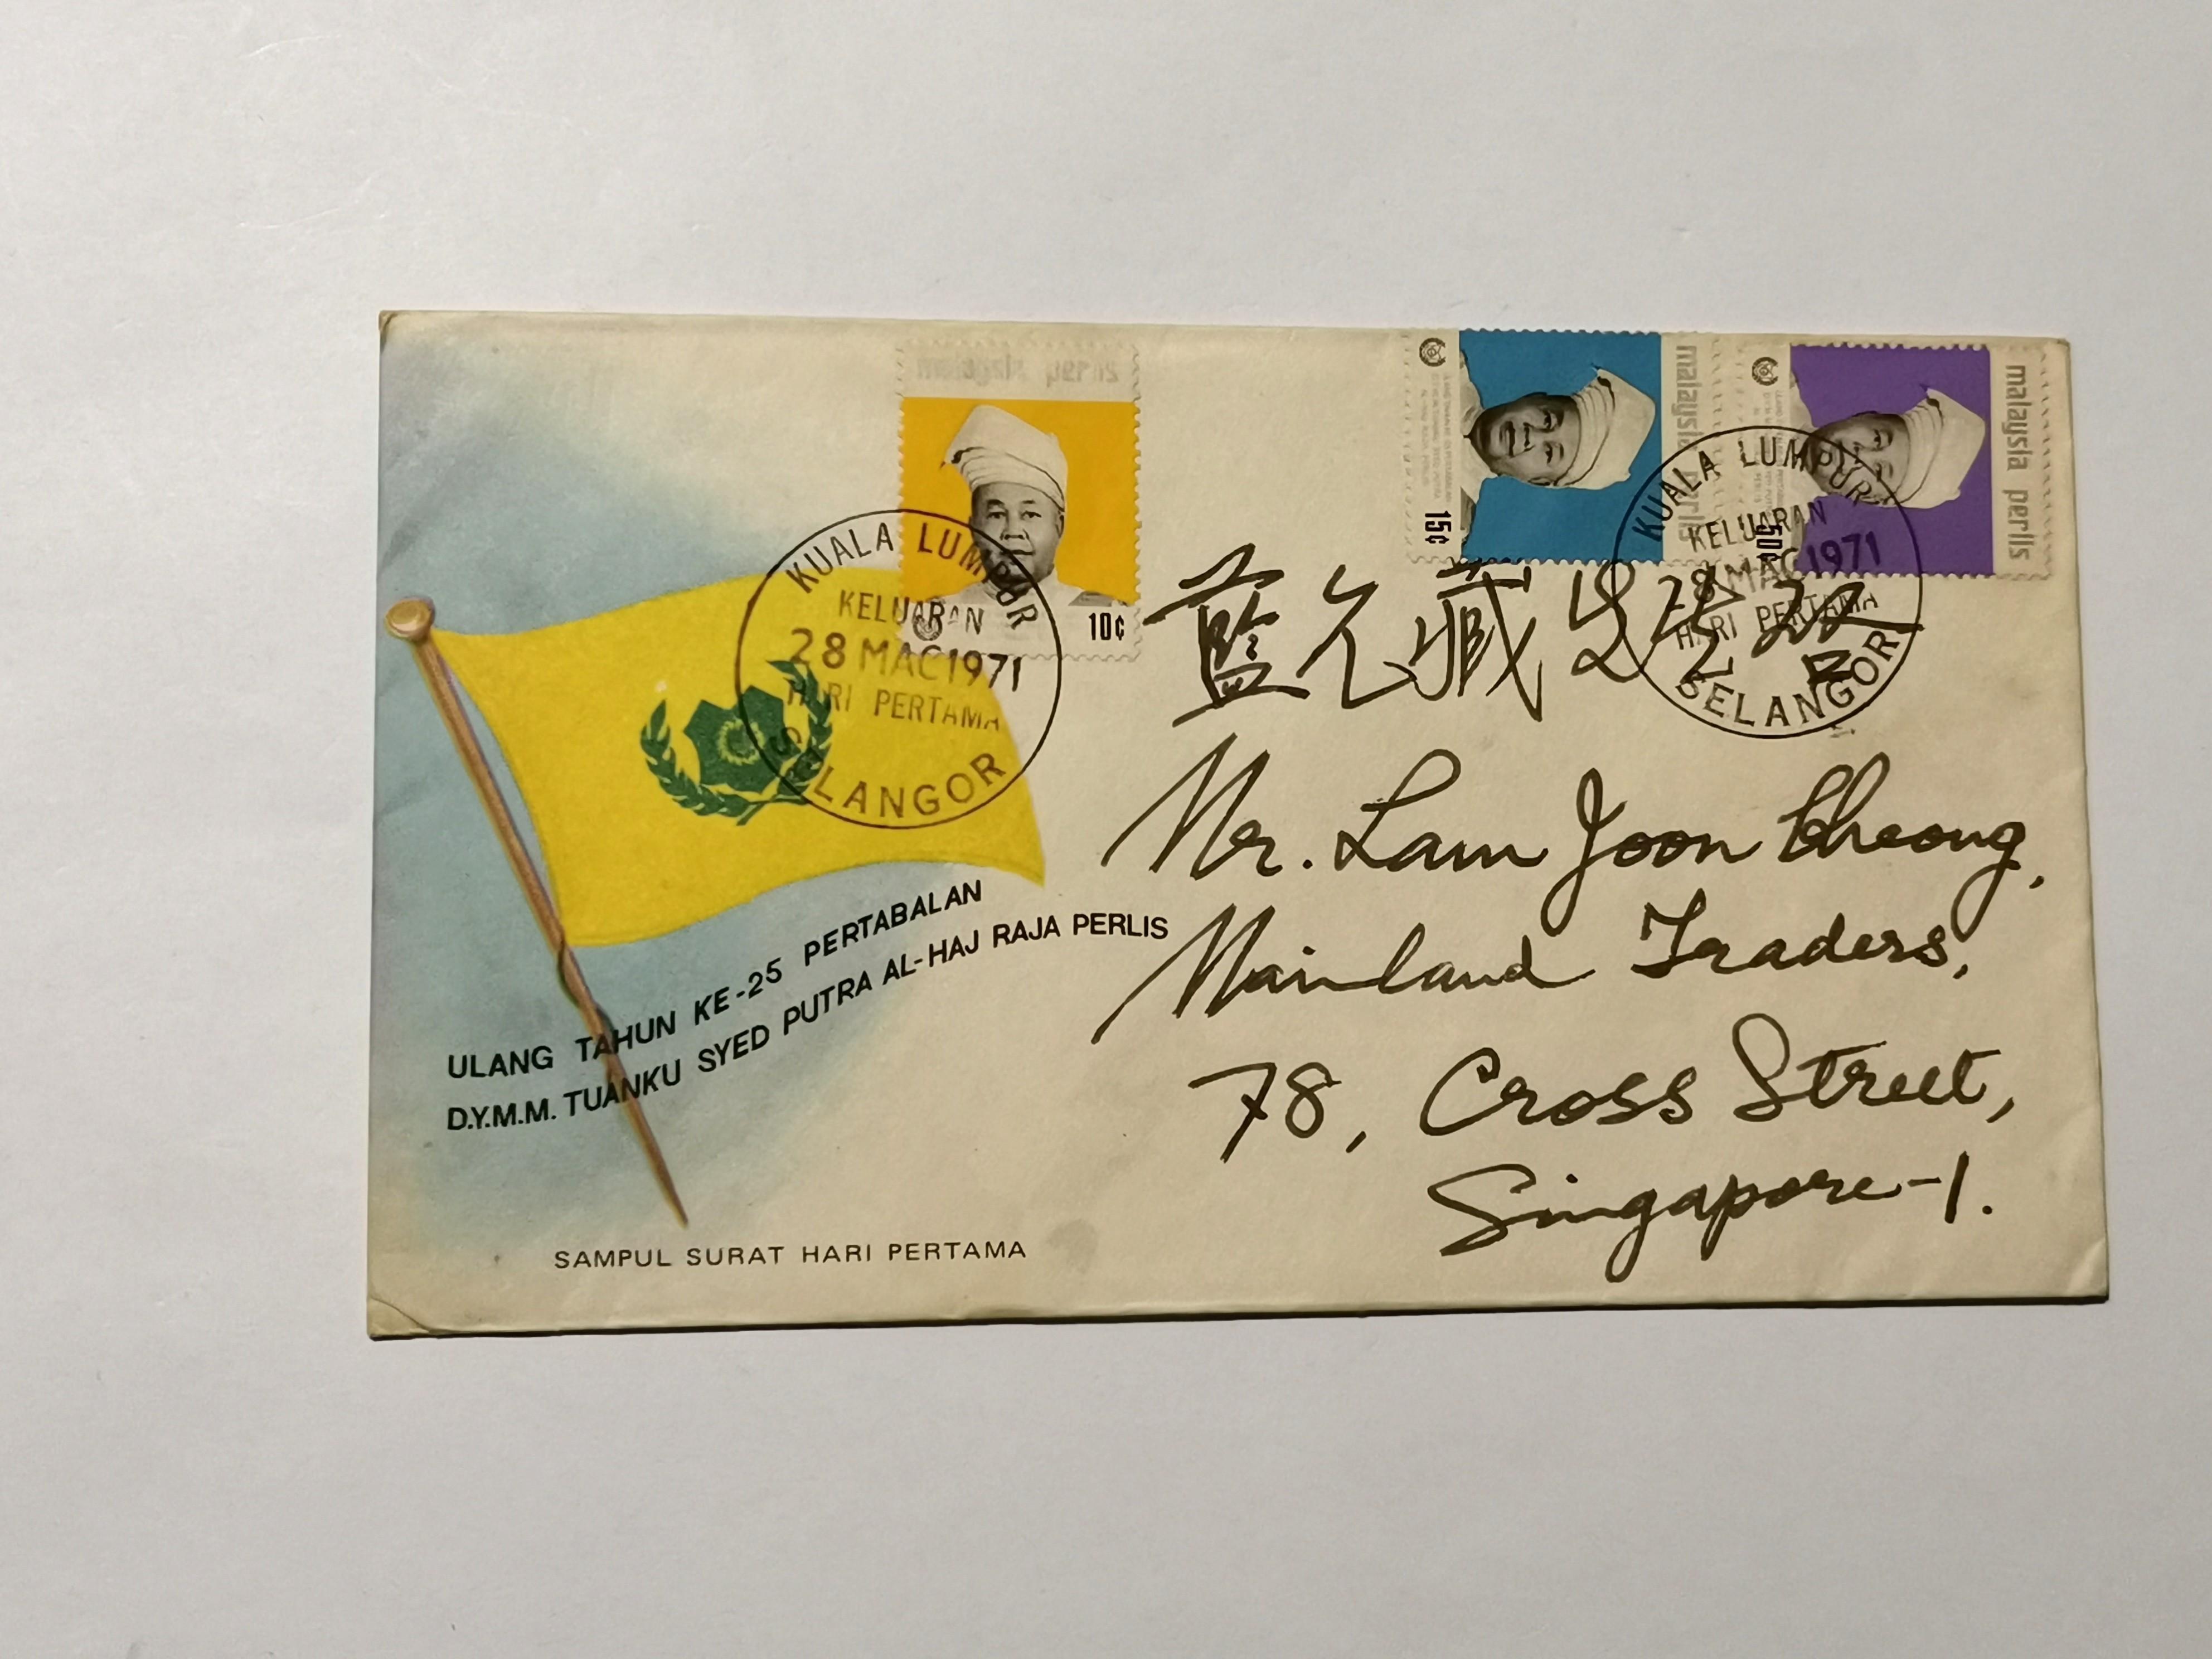 malaysia perlis
10¢
malaysia perlis
15¢
malaysia perlis
50¢
KUALA LUMPUR
KELUARAN
28 MAC 1971
HARI PERTAMA
SELANGOR
KUALA LUMPUR
KELUARAN
28 MAC 1971
HARI PERTAMA
SELANGOR
藍允藏先生
Mr. Lam Joon Cheong,
Mainland Traders,
78, Cross Street,
Singapore-1.
ULANG TAHUN KE-25 PERTABALAN
D.Y.M.M. TUANKU SYED PUTRA AL-HAJ RAJA PERLIS
SAMPUL SURAT HARI PERTAMA